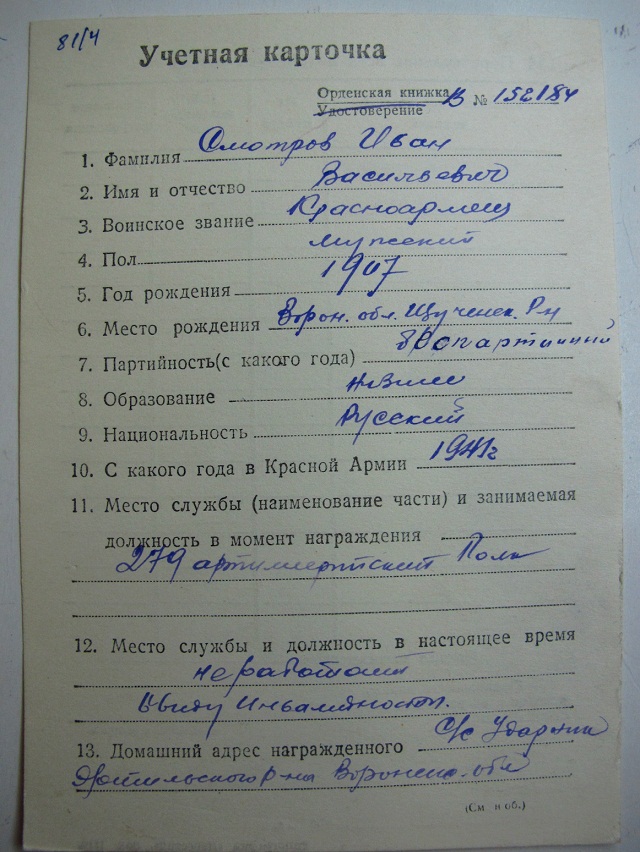 81/4
Учетная карточка
Орденская книжка В № 152184
Удостоверение
1. Фамилия Смотров Иван
2. Имя и отчество Васильевич
3. Воинское звание Красноармеец
4. Пол мужский
5. Год рождения 1907
6. Место рождения Ворон. обл. Щученск. Р-н
7. Партийность(с какого года) беспартийный
8. Образование низшее
9. Национальность Русский
10. С какого года в Красной Армии 1941г
11. Место службы (наименование части) и занимаемая
должность в момент награждения
279 артиллерийский Полк
12. Место службы и должность в настоящее время
не работает
ввиду инвалидности.
13. Домашний адрес награжденного с/с Ударник
р-на Воронеж. обл
(См. н об.)